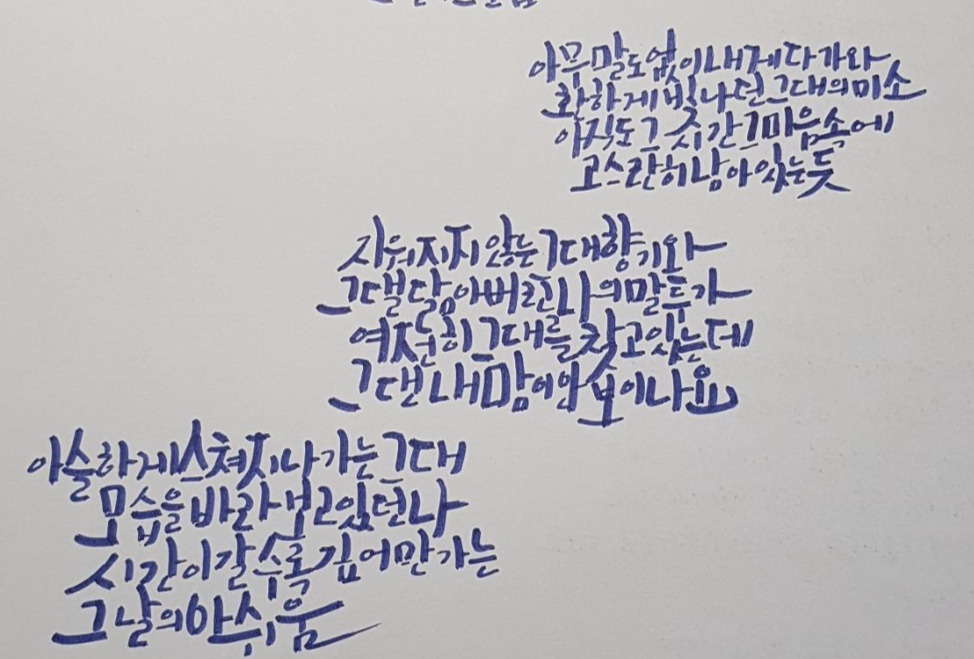 아무말도없이내게다가와
환하게빛나던그대의미소
아직도그시간그마음속에
고스란히남아있는듯
지워지지않는그대향기와
그댈닮아버린나의말투가
여전히그대를찾고있는데
그댄내맘이안보이나요
아슬하게스쳐지나가는그대
모습을바라보고있던나
시간이갈수록깊어만가는
그날의아쉬움